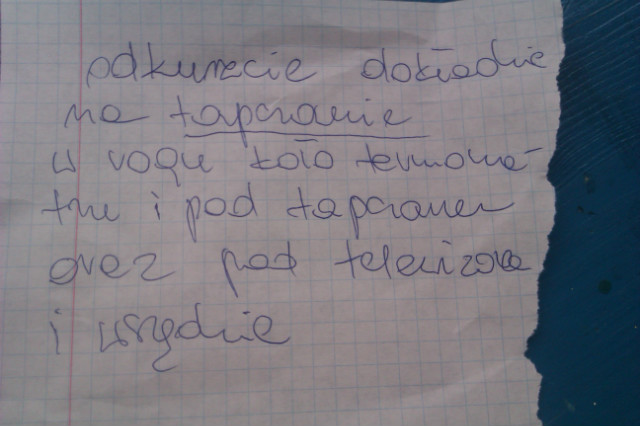 odkurzcie dokładnie
na tapczanie
w rogu koło termome-
tru i pod tapczanem
oraz pod telewizorem
i wszędzie